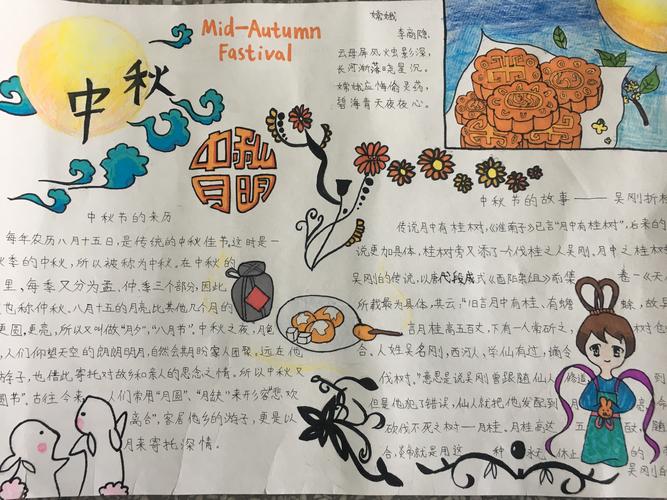 中秋
Mid-Autumn
Fastival
嫦娥
李商隐
云母屏风烛影深,
长河渐落晓星沉。
嫦娥应悔偷灵药,
碧海青天夜夜心。
中秋月明
中秋节的来历
每年农历八月十五日,是传统的中秋佳节。这时是一
秋季的中秋,所以被称为中秋。在中秋的
里,每季又分为孟、仲、季三个部分,因此
也称仲秋。八月十五的月亮比其他几个月的
更圆,更亮,所以又叫做"月夕","八月节"。中秋之夜,月色
人们仰望天空的朗朗明月,自然会期盼家人团聚。远在他
游子,也借此寄托对故乡和亲人的思念之情。所以中秋又
圆节"。古往今来,人们常用"月圆"、"月缺"来形容"悲欢
离合",客居他乡的游子,更是以
月来寄托深情。
中秋节的故事——吴刚折桂
传说月中有桂树,《淮南子》已言"月中有桂树",后来的
说更加具体,桂树旁又添了一个伐桂之人吴刚。月中之桂树
吴刚的传说,以唐代段成式《酉阳杂俎》前集 卷一《天
所载最为具体,其云:"旧言月中有桂、有蟾 蜍,故
言月桂高五百丈,下有一人常斫之,
合。人姓吴名刚,西河人,学仙有过,谪令
伐树。"意思是说吴刚曾跟随仙人 修道
但是他犯了错误,仙人就把他发配到 月
砍伐不死之树——月桂。月桂高达 五
合,
种 永 休止
吴刚的